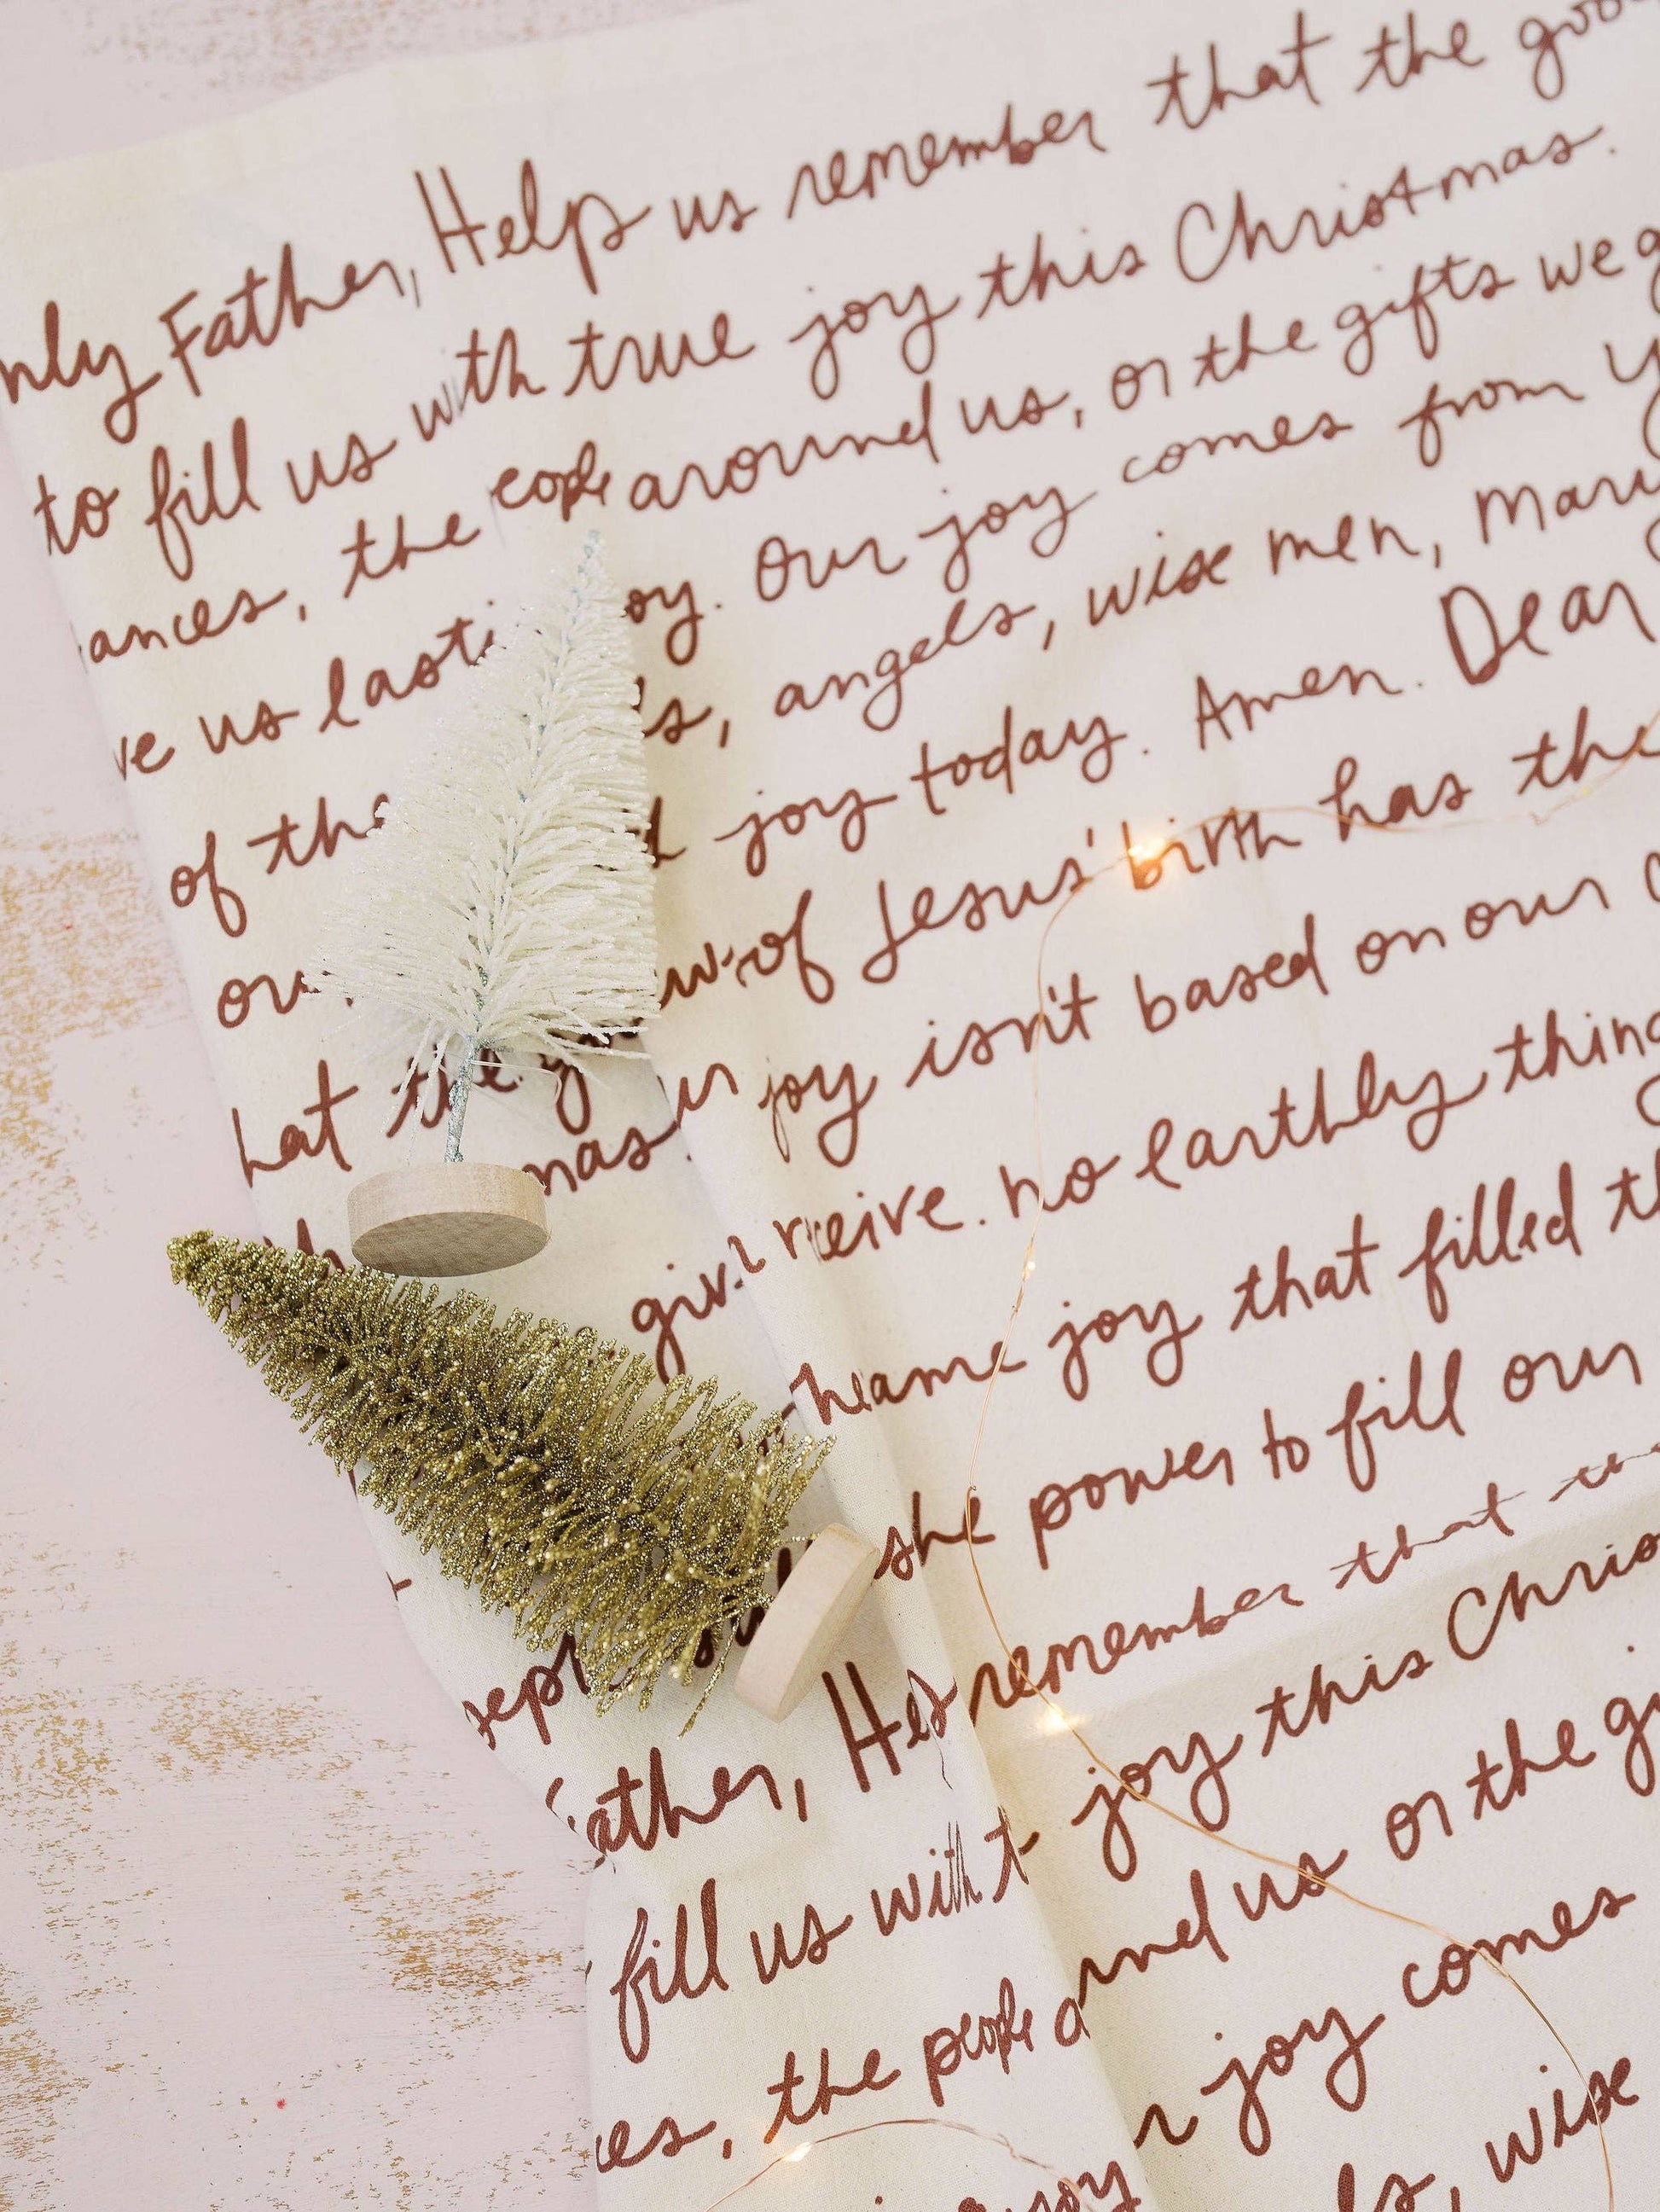 nly Father, Help us remember that the goo
to fill us with true joy this Christmas.
ances, the around us, or the gifts we g
ve us lasti oy. Our joy comes from Y
of the ds, angels, wise men, Mary
our d joy today. Amen. Dear
hat the of Jesus' birth has the
mas. ur joy isn't based on our c
give r receive. No earthly thing
same joy that filled th
the power to fill our
sep remember that
ather, Hel joy this Chris
fill us with t und us or the gi
es, the people a r joy comes
joy ds, wise